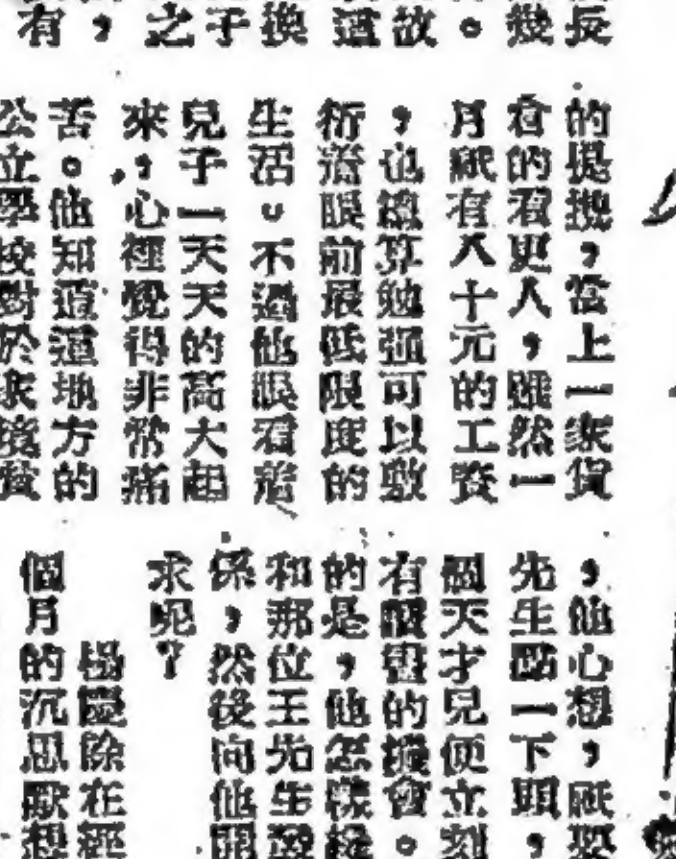 長
幾
。
故
這
換
子
之
，
有
的提挽，當上一家貨
倉的看更人，雖然一
月祇有八十元的工資
，也總算勉强可以敷
衍著眼前最低限度的
生活。不過他眼看着
兒子一天天的高大起
來，心裡覺得非常痛
苦。他知道這地方的
公立學校對於
，他心想，祇要
先生點一下頭，
個天才兒便立刻
有讀書的機會。
的是，他怎樣
和那位王先生
係，然後向他開
求呢？
楊慶除在經
個月的沉思默想